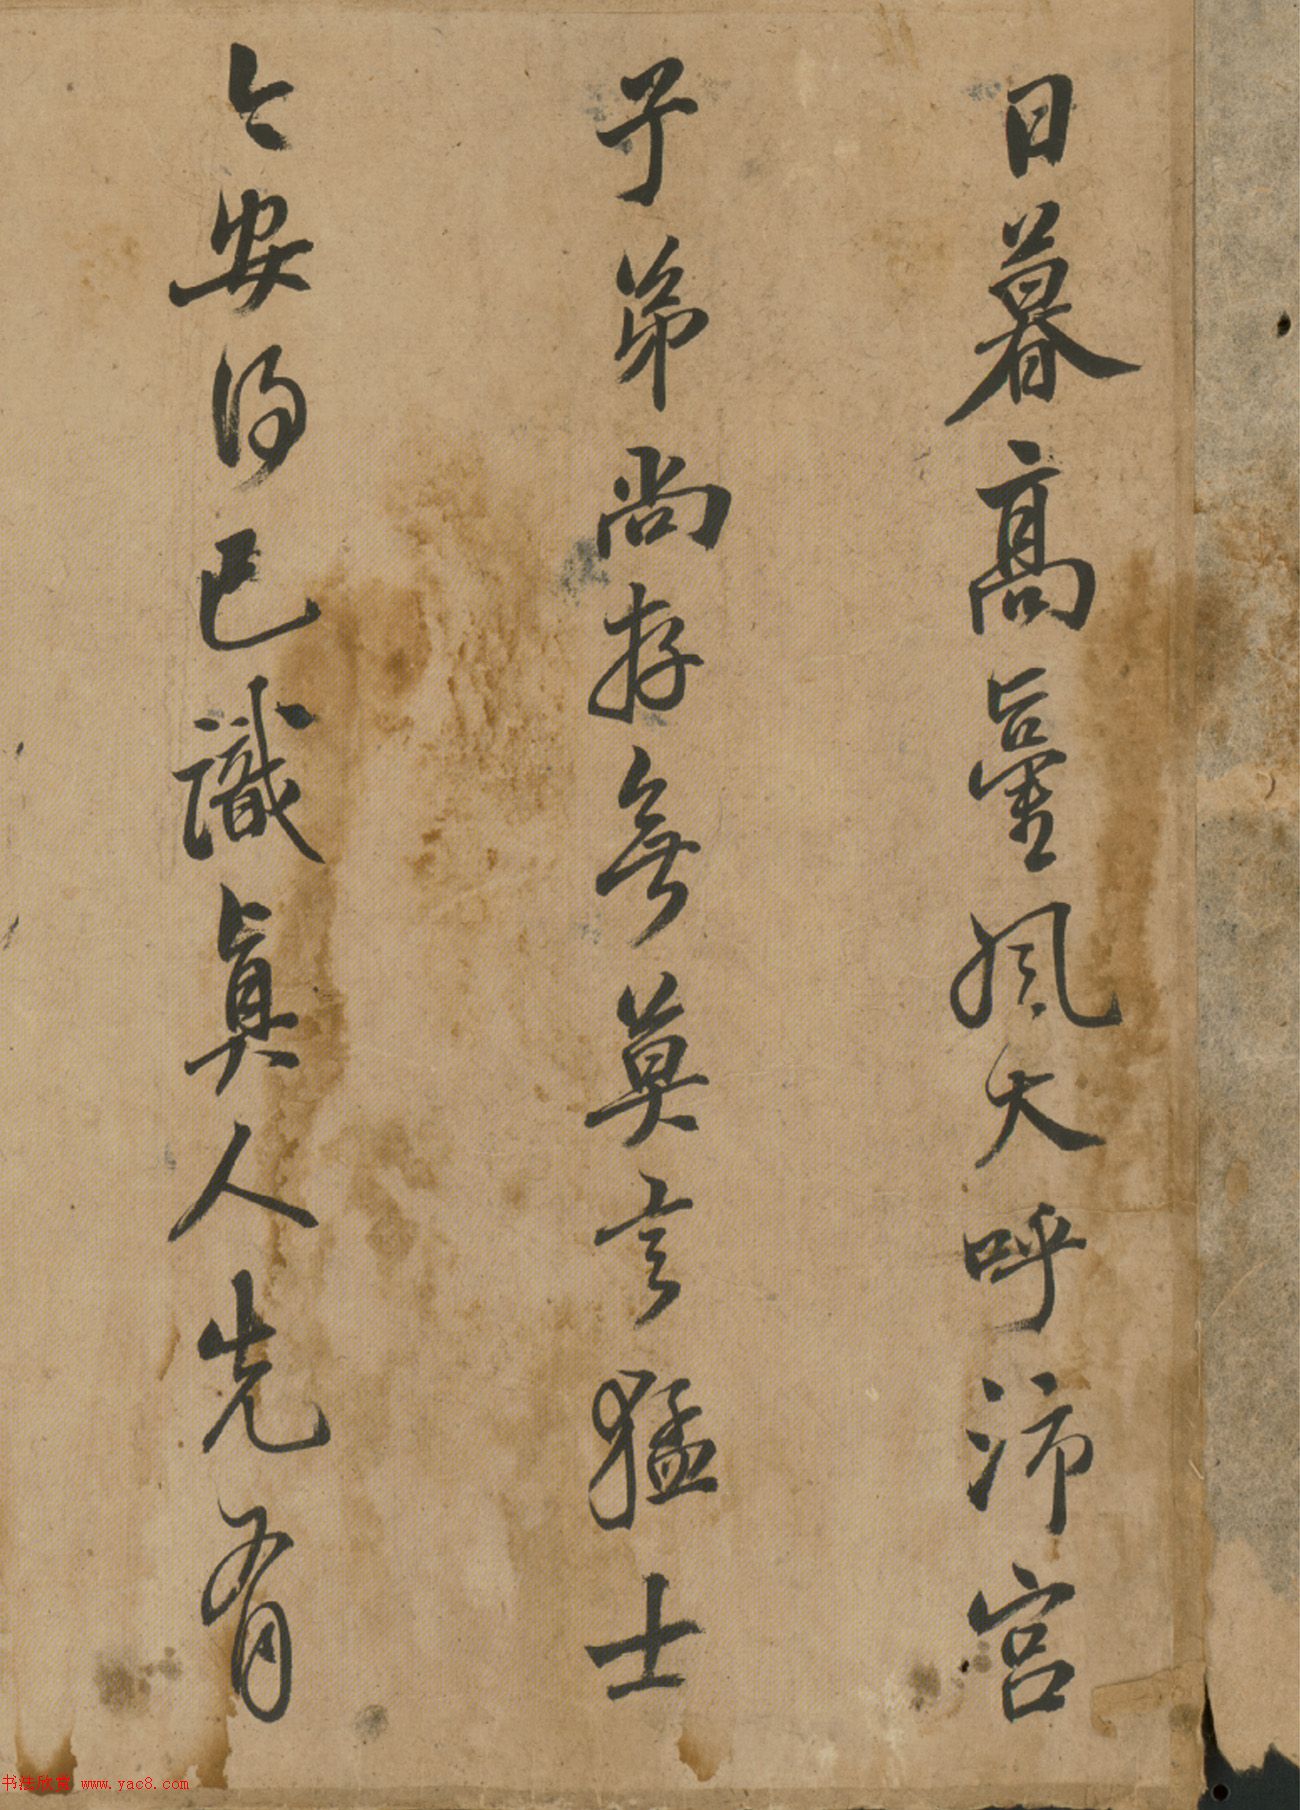 日暮高臺風大呼沛宮
子弟尚存無莫言猛士
今安得已識眞人先有
书法欣赏 www.yac8.com